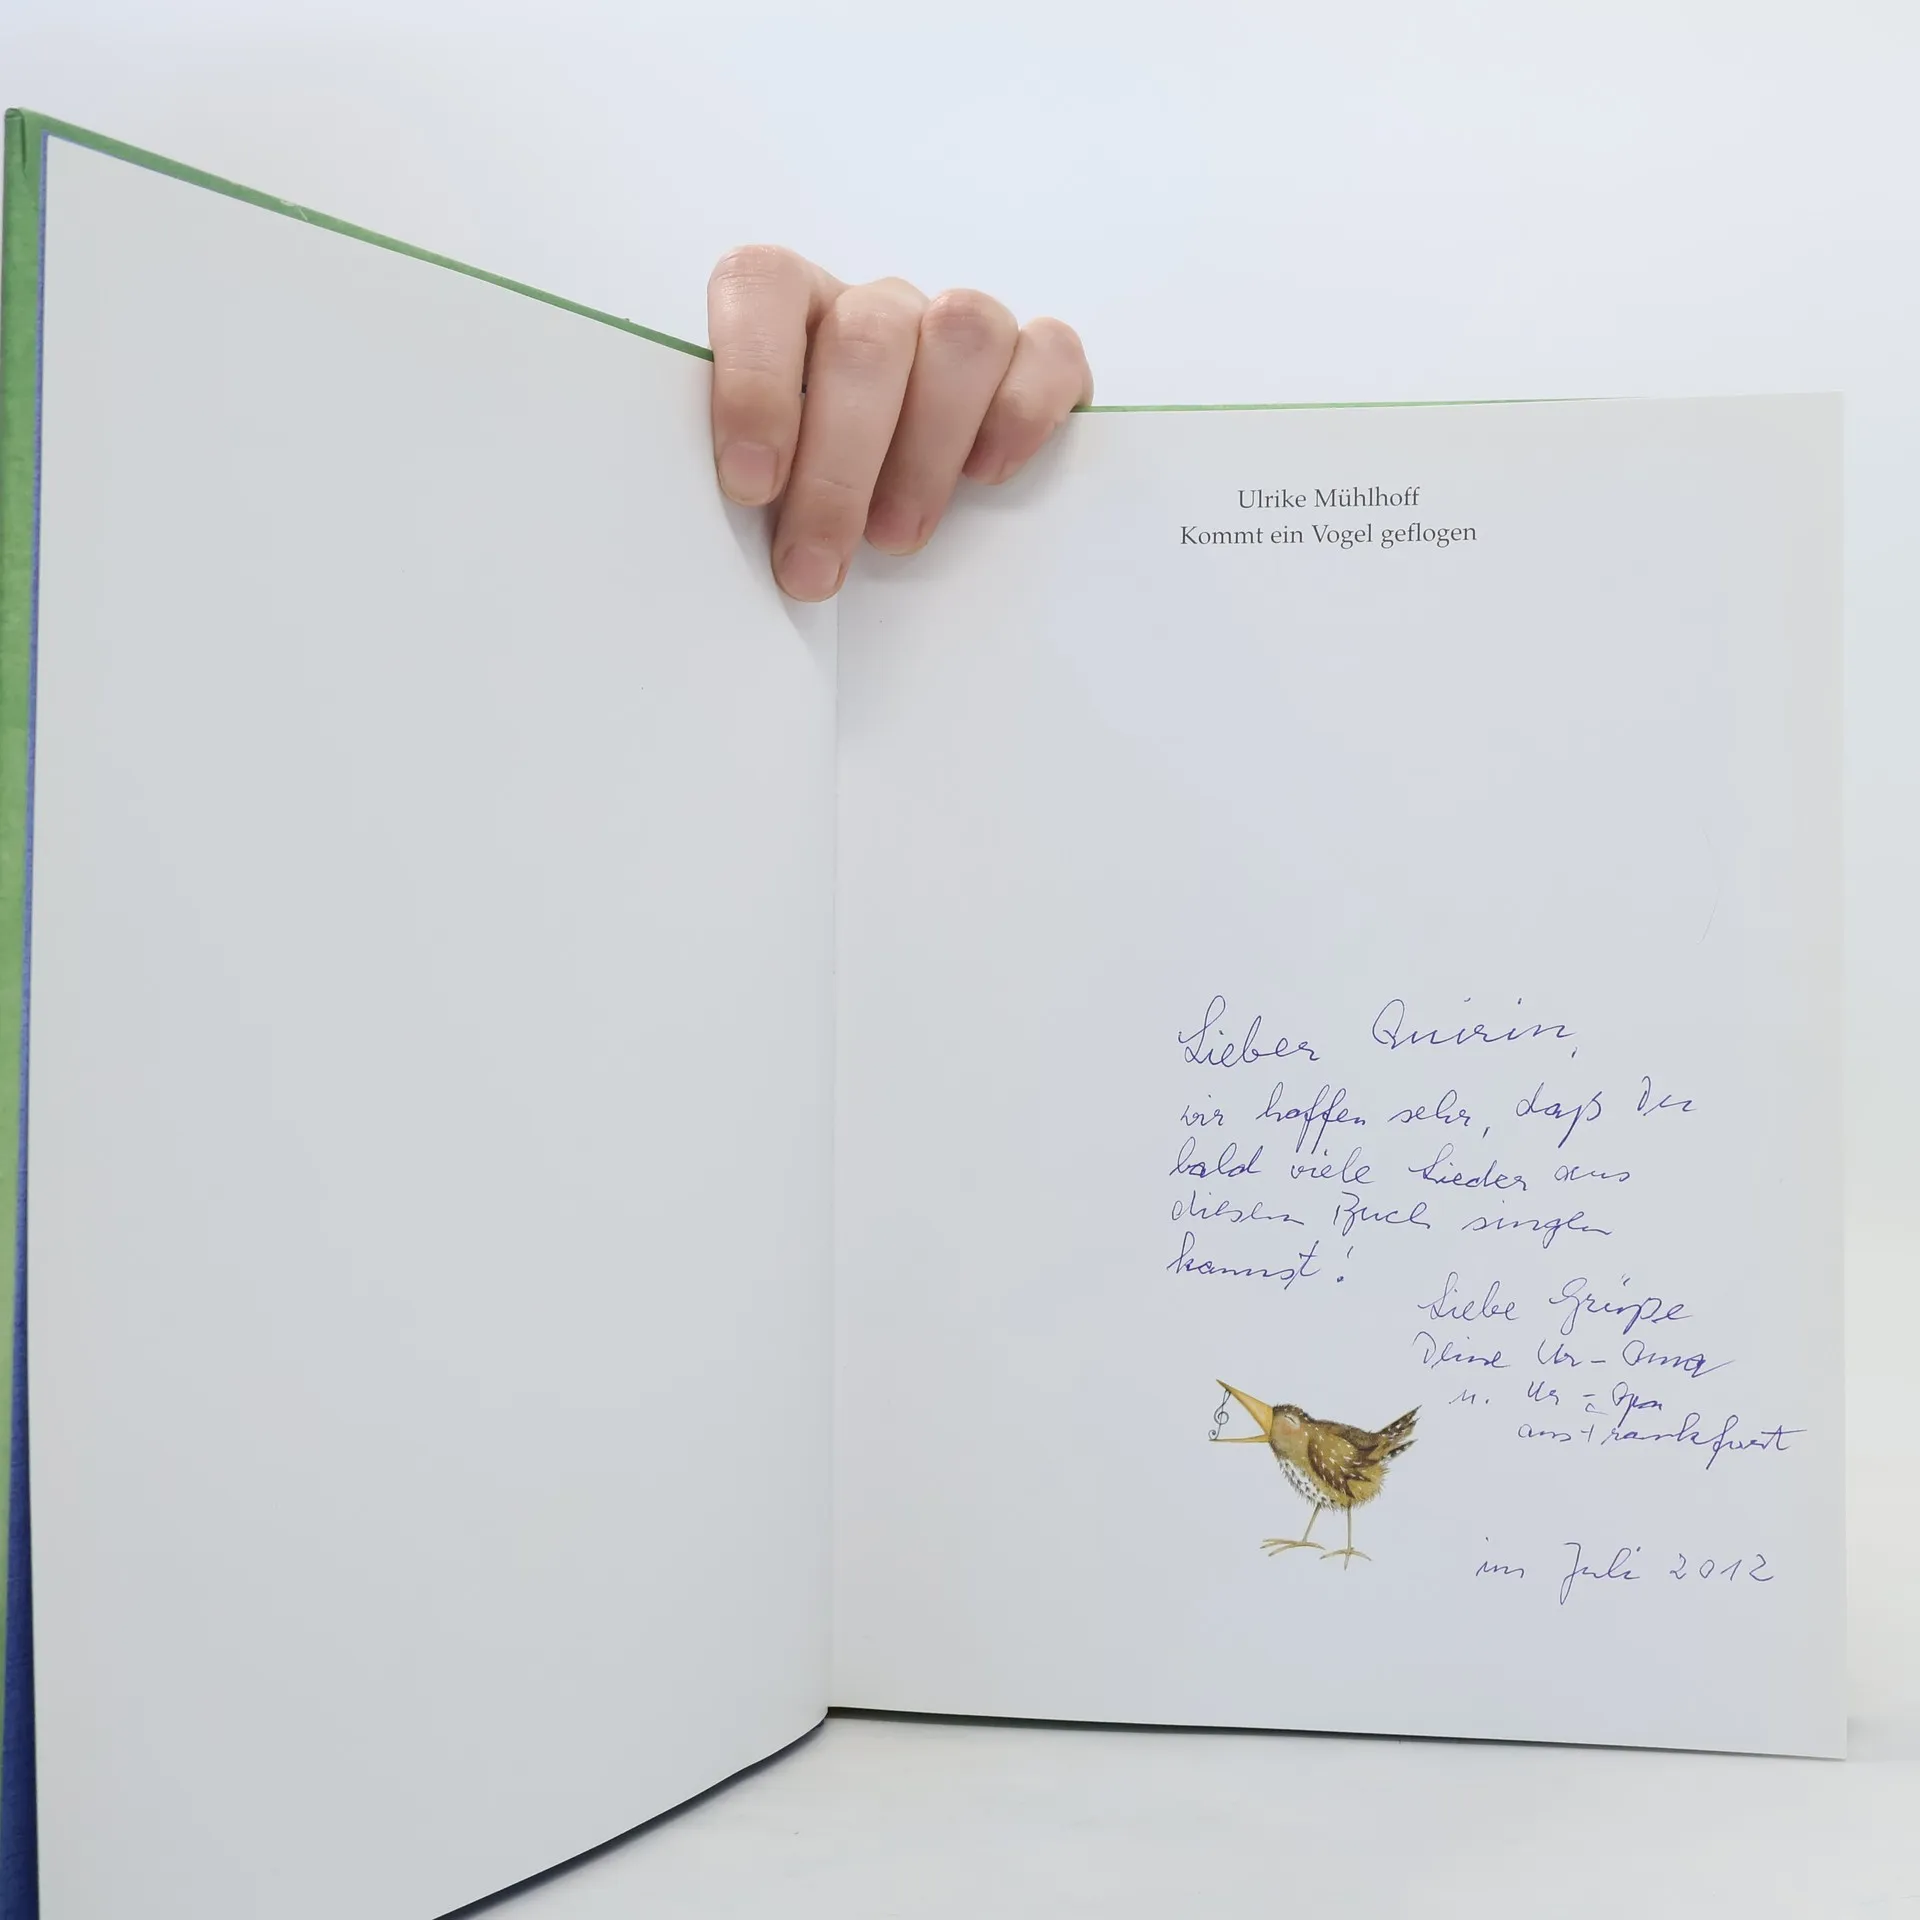 Ulrike Mühlhoff
Kommt ein Vogel geflogen
Lieber Quirin,
wir hoffen sehr, daß Du
bald viele Lieder aus
diesem Buch singen
kannst!
Liebe Grüße
Deine Ur-Oma
u. Ur-Opa
aus Frankfurt
im Juli 2012